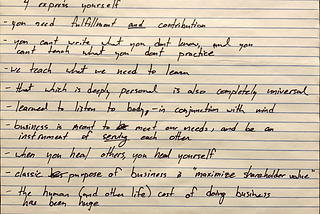 4 express yourself
- you need fulfillment and contribution
- you cant write what you dont know, and you
cant teach what you don't practice
- we teach what we need to learn
- that which is deeply personal is also completely universal
- learned to listen to body, - in conjunction with mind
business is meant to meet our needs, and be an
instrument of serving each other
- when you heal others, you heal yourself
- classic purpose of business is "maximize shareholder value"
- the human (and other life) cost of doing business
has been huge